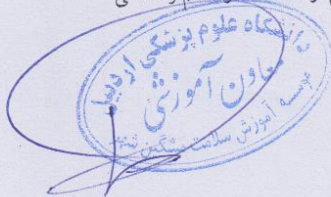 دانشگاه علوم پزشکی اردبیل
معاون آموزشی
موسسه آموزش سلامت مشگین شهر